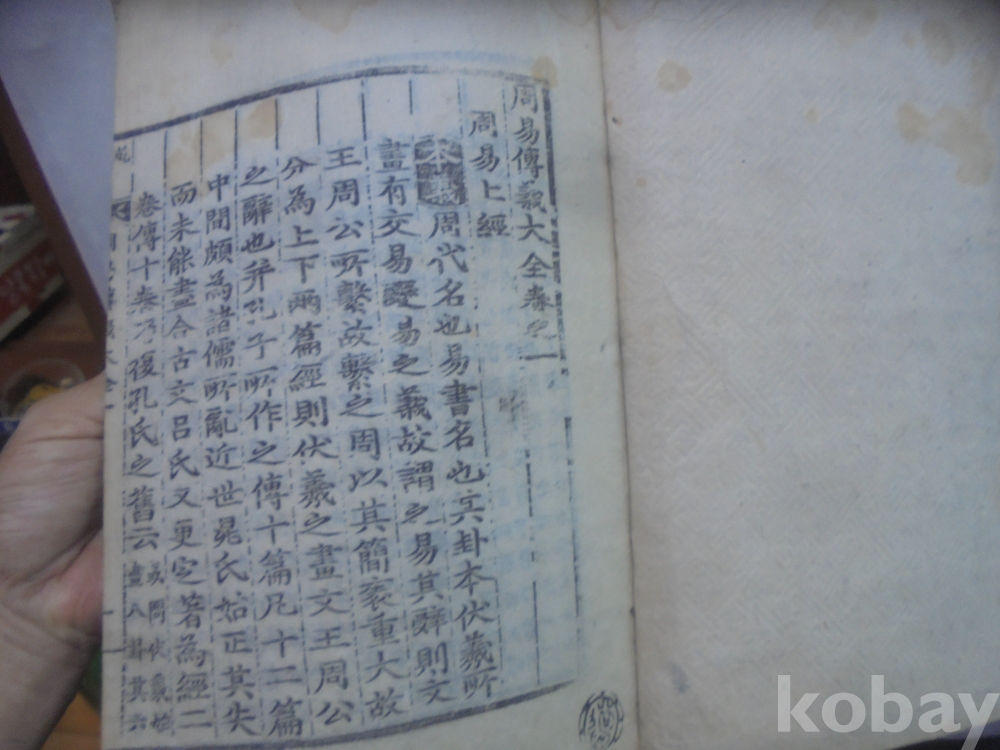 周易傳義大全卷之一
周易上經
本義周代名也易書名也其卦本伏羲所
畫有交易變易之義故謂之易其辭則文
王周公所繫故繫之周以其簡袠重大故
分為上下兩篇經則伏羲之畫文王周公
之辭也并孔子所作之傳十篇凡十二篇
中間頗為諸儒所亂近世晁氏始正其失
而未能盡合古文呂氏又更定著為經二
卷傳十卷乃復孔氏之舊云
或問伏羲始
畫八卦其六
kobay